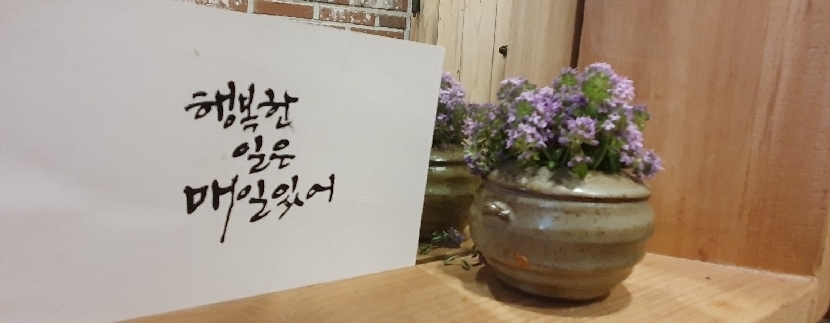 행복한
일은
매일있어